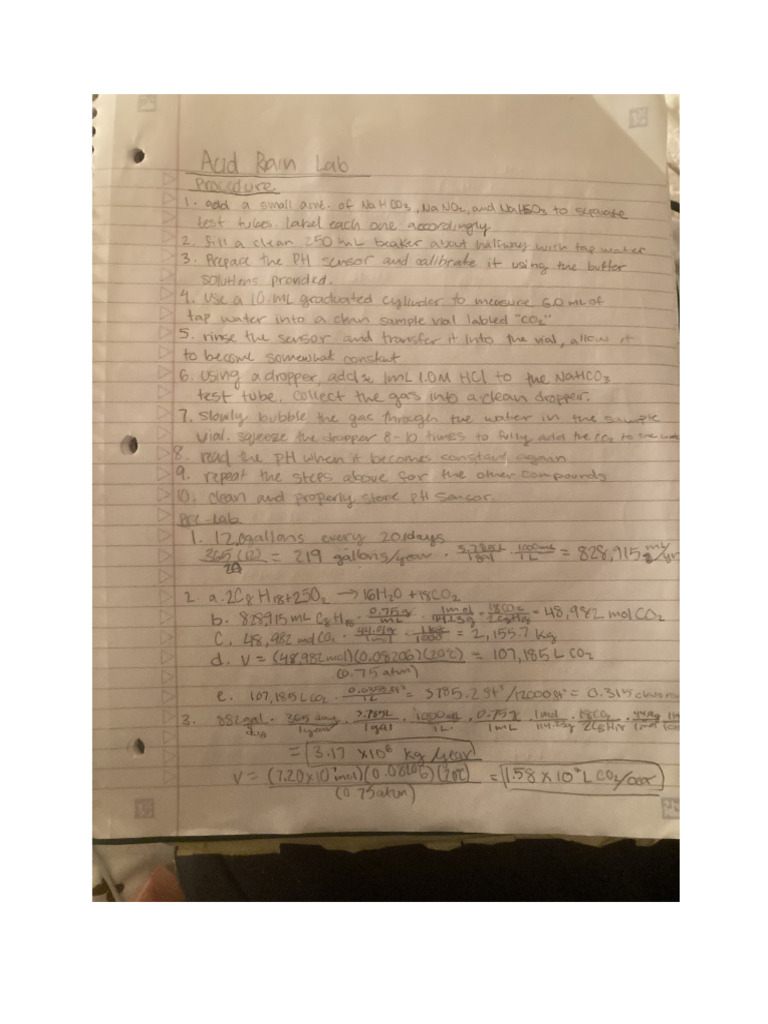 Acid Rain Lab
Procedure
1. add a small amt. of NaHCO3, NaNO2, and NaHSO3 to separate
test tubes. Label each one accordingly
2. fill a clean 250 mL beaker about halfway with tap water
3. Prepare the PH sensor and calibrate it using the buffer
solutions provided.
4. Use a 10. mL graduated cylinder to measure 6.0 mL of
tap water into a clean sample vial labled "CO2"
5. rinse the sensor and transfer it into the vial, allow it
to become somewhat constant
6. Using a dropper, add ≈ 1mL 1.0M HCl to the NaHCO3
test tube. Collect the gas into a clean dropper.
7. Slowly bubble the gas through the water in the sample
vial. squeeze the dropper 8-10 times to fully add the CO2 to the
8. read the PH when it becomes constant again
9. repeat the steps above for the other compounds
10. clean and properly store pH sensor.
Pre-Lab
1. 12.0gallons every 20.days
365(12)/20 = 219 gallons/year · 3.785L/1gal · 1000mL/1L = 828,915
2. a. 2C8H18+25O2 → 16H2O + 18CO2
b. 828915 mL C8H18 · 0.75g/mL · 1mol/114.23g · 18CO2/2C8H18 = 48,982 mol CO2
c. 48,982 molCO2 · 44.01g/1mol · 1kg/1000 = 2,155.7 kg
d. V = (48,982 mol)(0.08206)(20℃)/(0.75atm) = 107,185 L CO2
e. 107,185 L CO2 · /1L = 3785.2 ft³/12000ft³ = 0.315
3. 882gal/day · 365 day/1year · 3.785L/1gal · 1000mL/1L · 0.75g/1mL · 1mol/114.23g · 18CO2/2C8H18 · 44.0g/1mol
= 3.17 × 10⁶ kg/year
V = (7.20×10⁷mol)(0.08206)(20℃)/(0.75atm) = 1.58 × 10⁸ L CO2/year